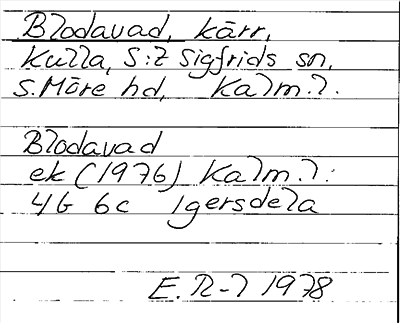 Blodavad, kärr,
Kulla, S:t Sigfrids sn,
S. Möre hd, Kalm. l.
Blodavad
ek (1976) Kalm. l:
4G 6c Igersdela
E. R-l 1978